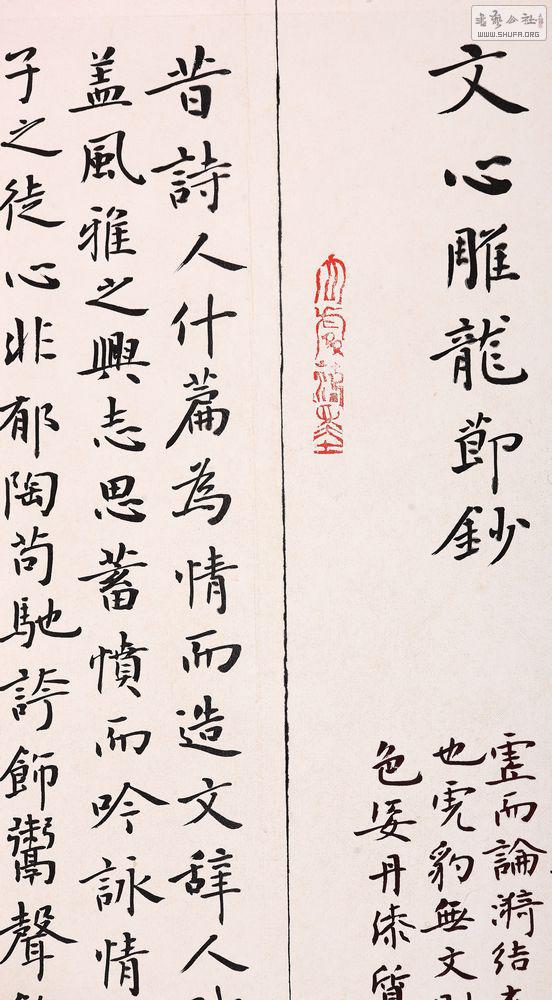 文心雕龍節鈔
虛而論漪結
也虎豹無文
色姿丹漆質
昔詩人什篇為情而造文辭人
蓋風雅之興志思蓄憤而吟詠情
子之徒心非郁陶苟馳誇飾鬻聲
書藝公社
WWW.SHUFA.ORG